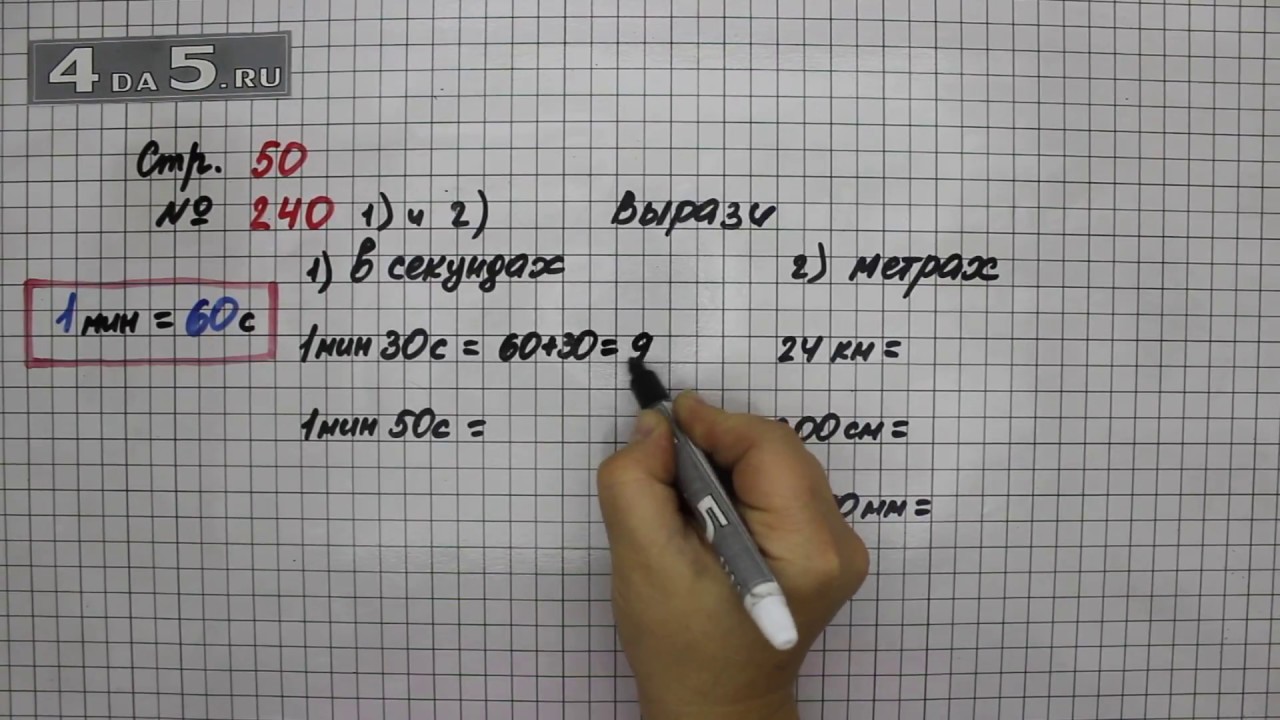 4DA5.RU
Стр. 50
№ 240 1) и 2) Вырази
1) в секундах 2) метрах
1 мин = 60 с
1 мин 30 с = 60+30= 9
24 км =
1 мин 50 с =
00 см =
0 мм =